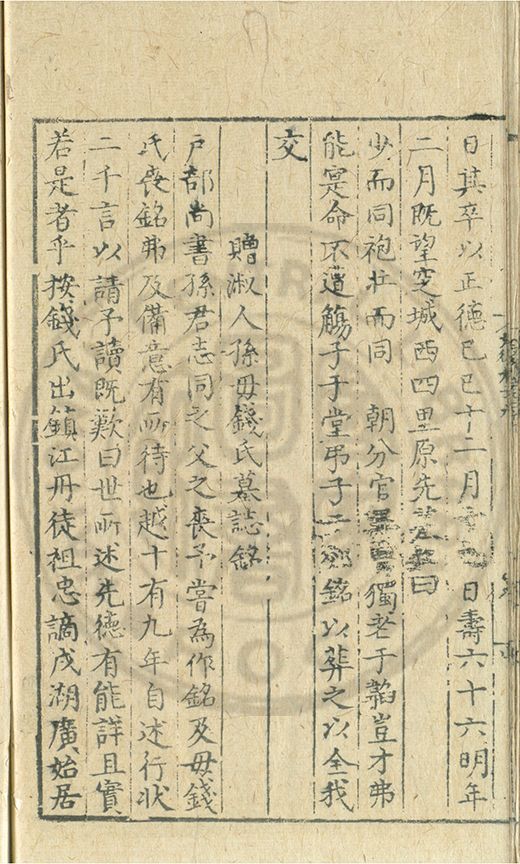 日其卒以正德己巳十二月日壽六十六明年
二月既望空城西四里原先曰
少而同袍壮而同　朝分官獨老于豈才弗
能寔命不遭觴子于堂弔子銘以葬之以全我
交
贈淑人孫母錢氏墓誌銘
戶部尚書孫君志同之父之喪予嘗為作銘及毋錢
氏喪銘弗及備意有所待也越十有九年自述行狀
二千言以請予讀既歎曰世所述先德有能詳且實
若是者乎按錢氏出鎮江丹徒祖忠謫戍湖廣始居